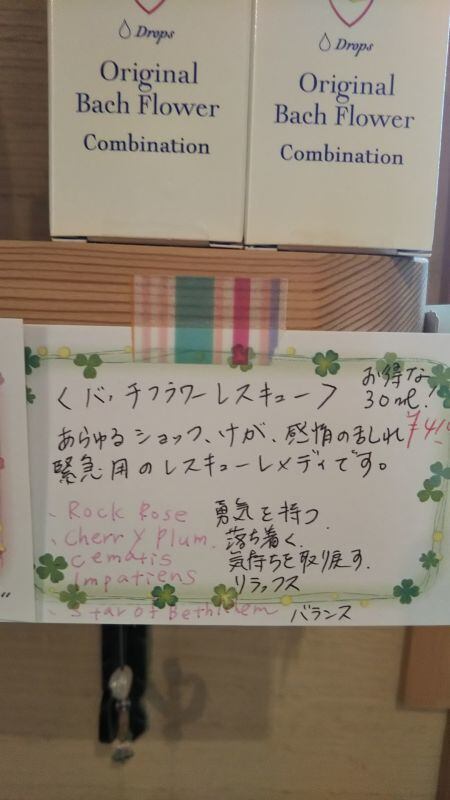 Drops
Original
Bach Flower
Combination
Drops
Original
Bach Flower
Combination
<バッチフラワーレスキュー>
お得な
30ml!
あらゆるショック、けが、感情の乱れ
緊急用のレスキューレメディです。
、Rock Rose 勇気を持つ
、Cherry Plum. 落ち着く
Cematis 気持ちを取り戻す.
Impatiens リラックス
、Star of Bethlehem バランス